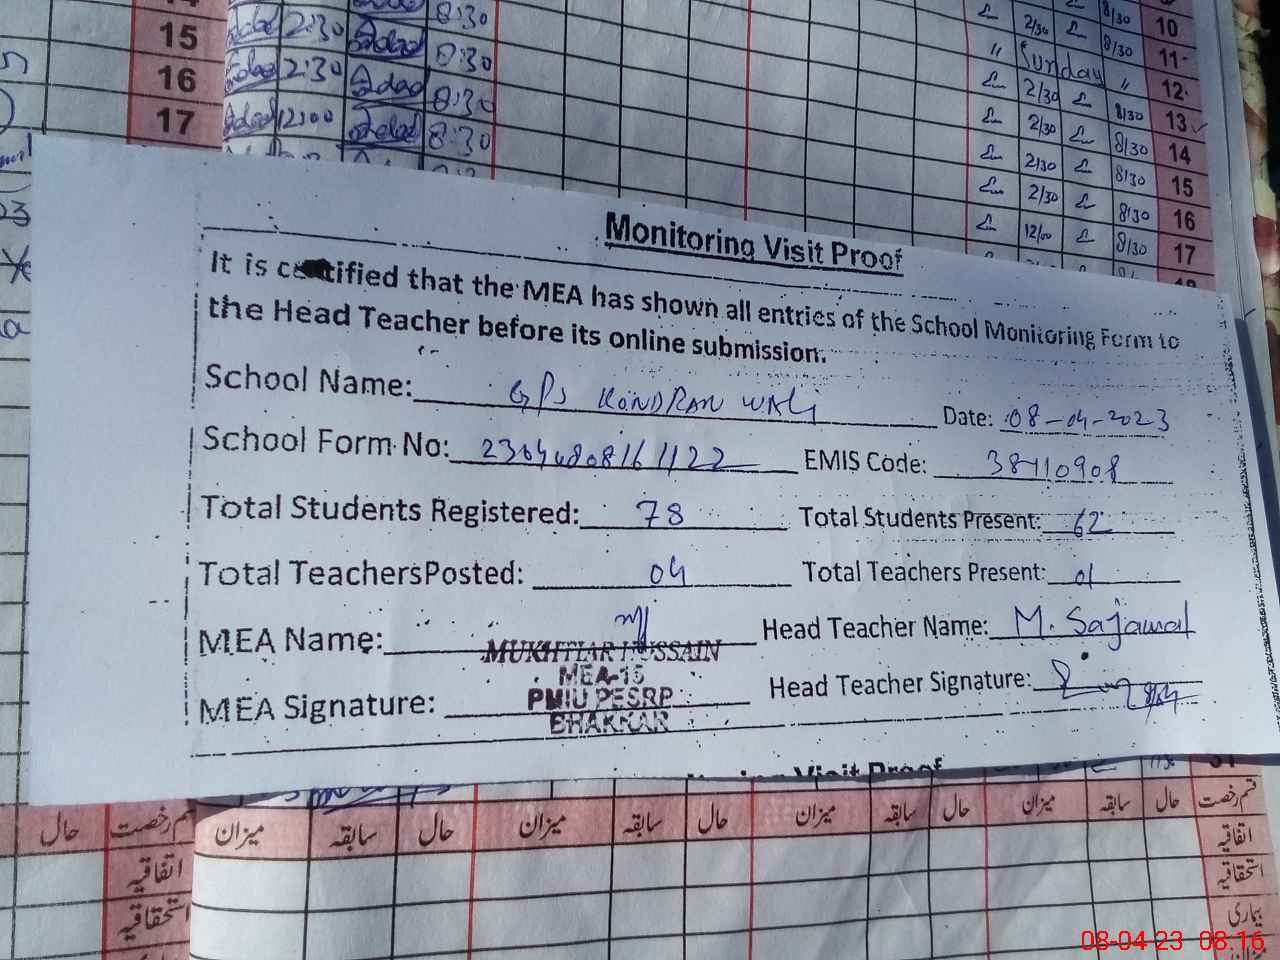 15 2:30 8:30
16 2:30 8:30
17 12:00 8:30
8:30
2/30 8/30 10
" Sunday " 11
2/30 8/30 12
2/30 8/30 13
2/30 8/30 14
2/30 8/30 15
12/00 8/30 16
8/30 17
Monitoring Visit Proof
It is certified that the MEA has shown all entries of the School Monitoring Form to
the Head Teacher before its online submission.
School Name: GPS KONDRAN WALI Date: 08-04-2023
School Form No: 23044808161122 EMIS Code: 38110908
Total Students Registered: 78 Total Students Present: 62
Total Teachers Posted: 04 Total Teachers Present: 01
MEA Name: Head Teacher Name: M. Sajawal
MUKHTIAR HUSSAIN
MEA-15
MEA Signature: PMIU PESRP Head Teacher Signature: 8/04
BHAKKAR
Visit Proof
حال قسم رخصت میزان سابقہ حال میزان سابقہ حال میزان سابقہ حال میزان سابقہ حال قسم رخصت
اتفاقیہ اتفاقیہ
استحقاقیہ استحقاقیہ
بیماری
میزان
08-04-23 08:16